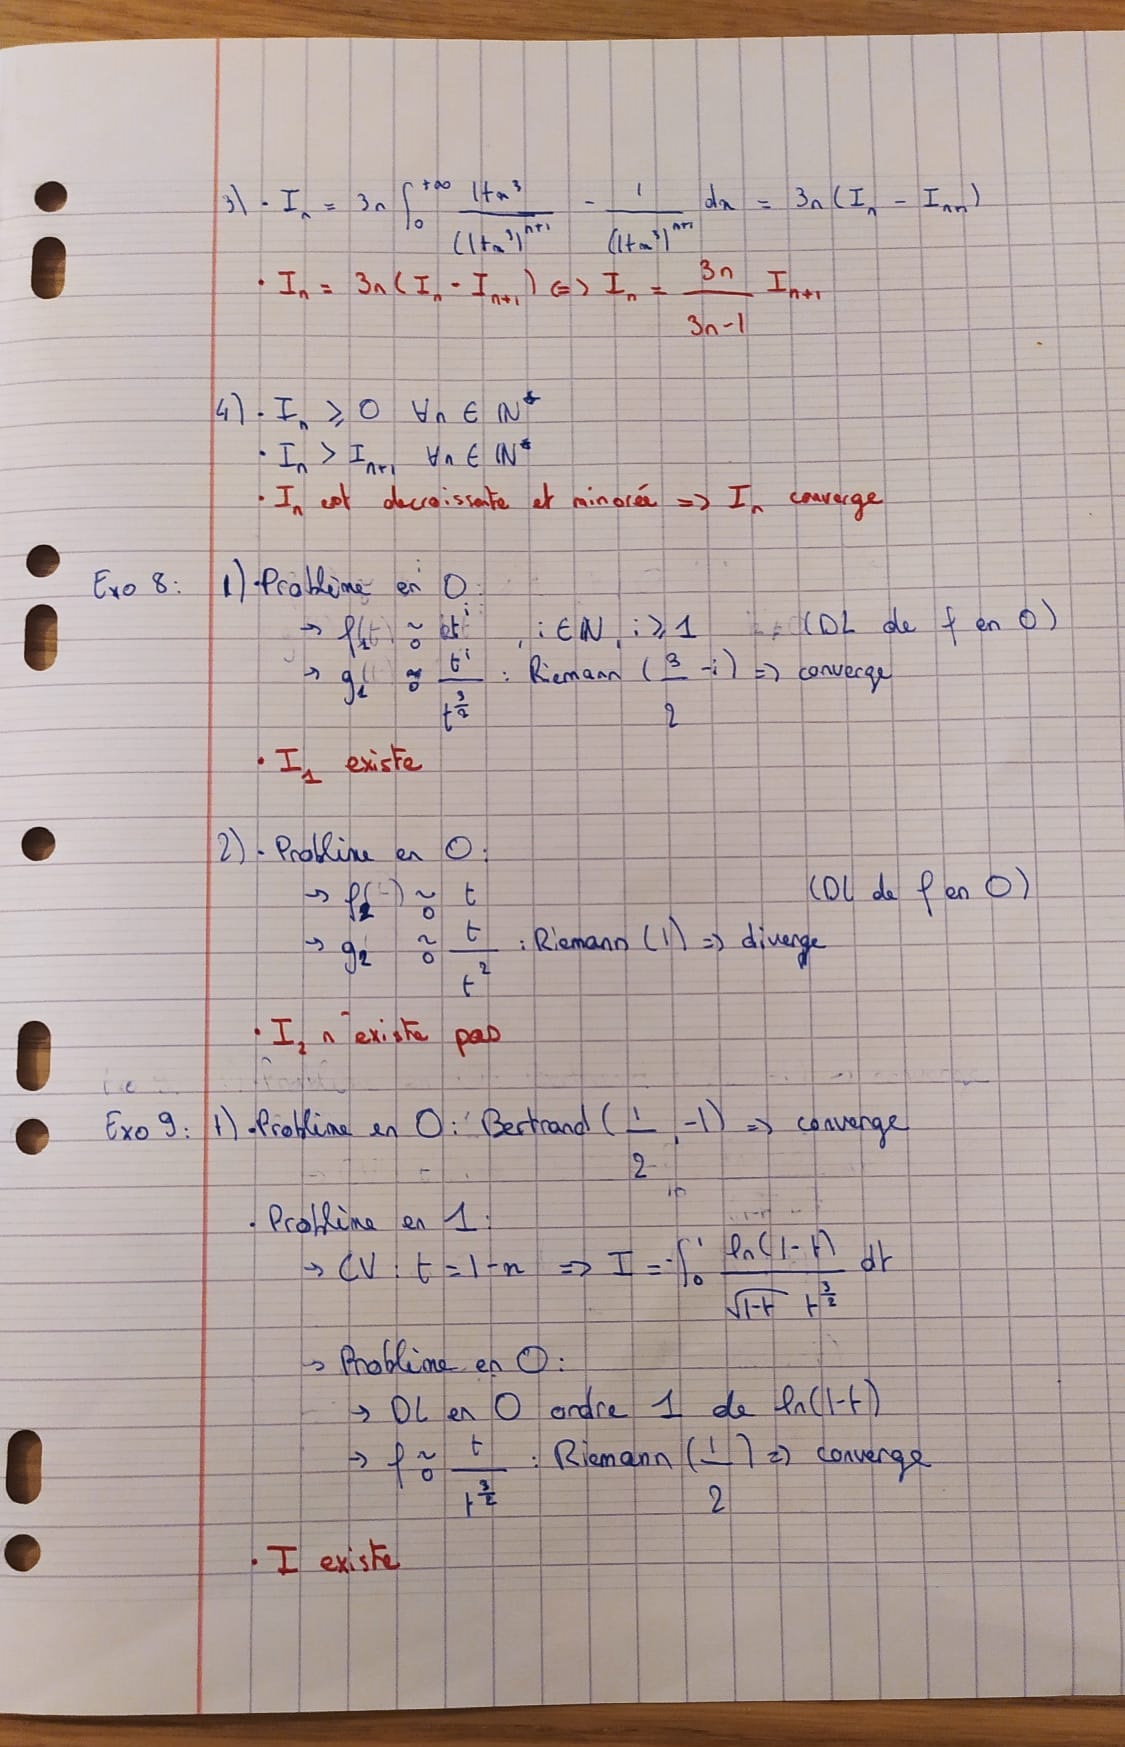 3) · Iₙ = 3n ∫₀^{+∞} (1+x³)/(1+x³)ⁿ⁺¹ - 1/(1+x³)ⁿ⁺¹ dx = 3n(Iₙ - Iₙ₊₁)
· Iₙ = 3n(Iₙ - Iₙ₊₁) <=> Iₙ = 3n/(3n-1) Iₙ₊₁
4) · Iₙ ⩾ 0 ∀n ∈ ℕ*
· Iₙ > Iₙ₊₁ ∀n ∈ ℕ*
· Iₙ est decroissante et minorée => Iₙ converge
Exo 8: 1) · Problème en 0:
→ f₁(t) ~₀ tⁱ, i ∈ ℕ, i ⩾ 1 (DL de f en 0)
→ g₁ ~₀ tⁱ/t^{3/2} : Riemann (3/2 - i) => converge
· I₁ existe
2) · Problème en 0:
→ f₂ ~₀ t (DL de f en 0)
→ g₂ ~₀ t/t² : Riemann (1) => diverge
· I₂ n'existe pas
Exo 9: 1) · Problème en 0: Bertrand (1/2, -1) => converge
· Problème en 1:
→ CV: t = 1-x => I = -∫₀¹ ln(1-t)/(√(1-t) t^{3/2}) dt
→ Problème en 0:
→ DL en 0 ordre 1 de ln(1-t)
→ f ~₀ t/t^{3/2} : Riemann (1/2) => converge
· I existe